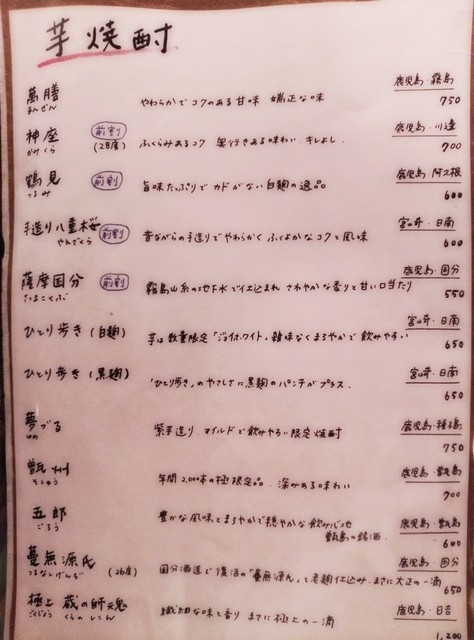 芋焼酎
萬膳 やわらかでコクのある甘味 端正な味 鹿児島・霧島
まんぜん 750
神座 前割 ふくらみあるコク 奥行きある味わい、キレよし 鹿児島・川辺
かみくら (28度) 700
鶴見 前割 旨味たっぷりで カドがない白麹の逸品 鹿児島・阿久根
つるみ 600
手造り八重桜 前割 昔ながらの手造りでやわらかく ふくよかなコクと風味 宮崎・日南
やえざくら 600
薩摩国分 前割 霧島山系の地下水で仕込まれ さわやかな香りと甘い口当たり 鹿児島・国分
さつまこくぶ 550
ひとり歩き (白麹) 芋は数量限定「ジョイホワイト」雑味なくまろやかで飲みやすい 宮崎・日南
650
ひとり歩き (黒麹) 「ひとり歩き」のやさしさに黒麹のパンチがプラス. 宮崎・日南
650
夢づる 紫手造り、マイルドで飲みやすい限定焼酎 鹿児島・種子島
ゆめ 750
甑州 年間2,000本の極限定品 深みある味わい 鹿児島・甑島
そしゅう 900
五郎 豊かな風味とまろやかで穏やかな飲み心地 鹿児島・甑島
ごろう 甑島の銘酒 600
蔓無源氏 (26度) 国分酒造で復活の「蔓無源氏」と老麹仕込み まさに大正の一滴 鹿児島・国分
つるなしげんぢ 650
極上 蔵の師魂 繊細な味と香り まさに極上の一滴 鹿児島・日吉
ごくじょう くらのしこん 1,200